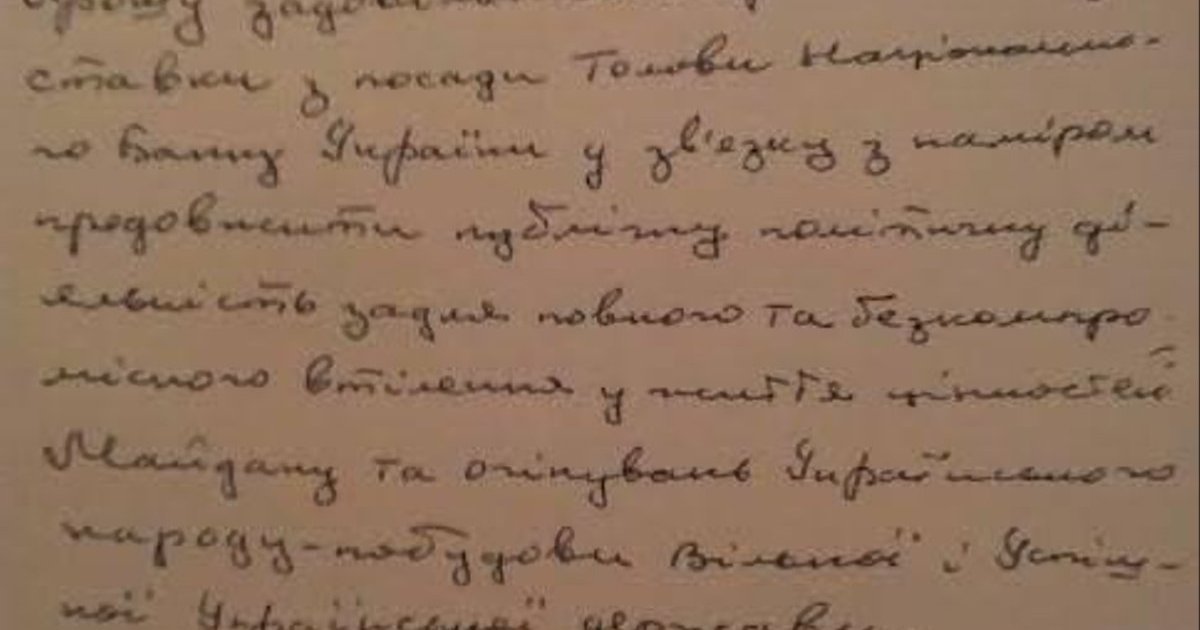 прошу задовольнити
ставки з посади Голови Національно-
го Банку України у зв'язку з наміром
продовжити публічну політичну ді-
яльність задля повного та безкомпро
місного втілення у життя цінностей
Майдану та очікувань Українського
народу-побудови Вільної і Успіш-
ної Української держави